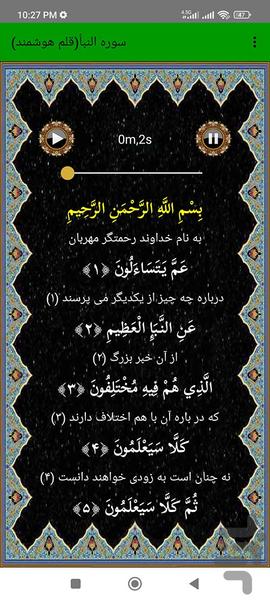 10:27 PM
4.5G
47
سوره النبأ(قلم هوشمند)
0m,2s
بِسْمِ اللَّهِ الرَّحْمَنِ الرَّحِيمِ
به نام خداوند رحمتگر مهربان
عَمَّ يَتَسَاءَلُونَ ﴿۱﴾
درباره چه چيز از يكديگر مى پرسند (۱)
عَنِ النَّبَإِ الْعَظِيمِ ﴿۲﴾
از آن خبر بزرگ (۲)
الَّذِي هُمْ فِيهِ مُخْتَلِفُونَ ﴿۳﴾
كه در باره آن با هم اختلاف دارند (۳)
كَلَّا سَيَعْلَمُونَ ﴿۴﴾
نه چنان است به زودى خواهند دانست (۴)
ثُمَّ كَلَّا سَيَعْلَمُونَ ﴿۵﴾